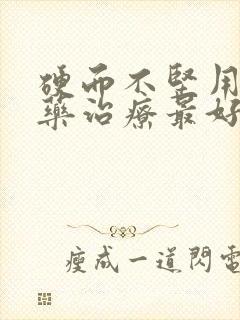 硬而不坚用
藥治療最好
瘦成一道閃電